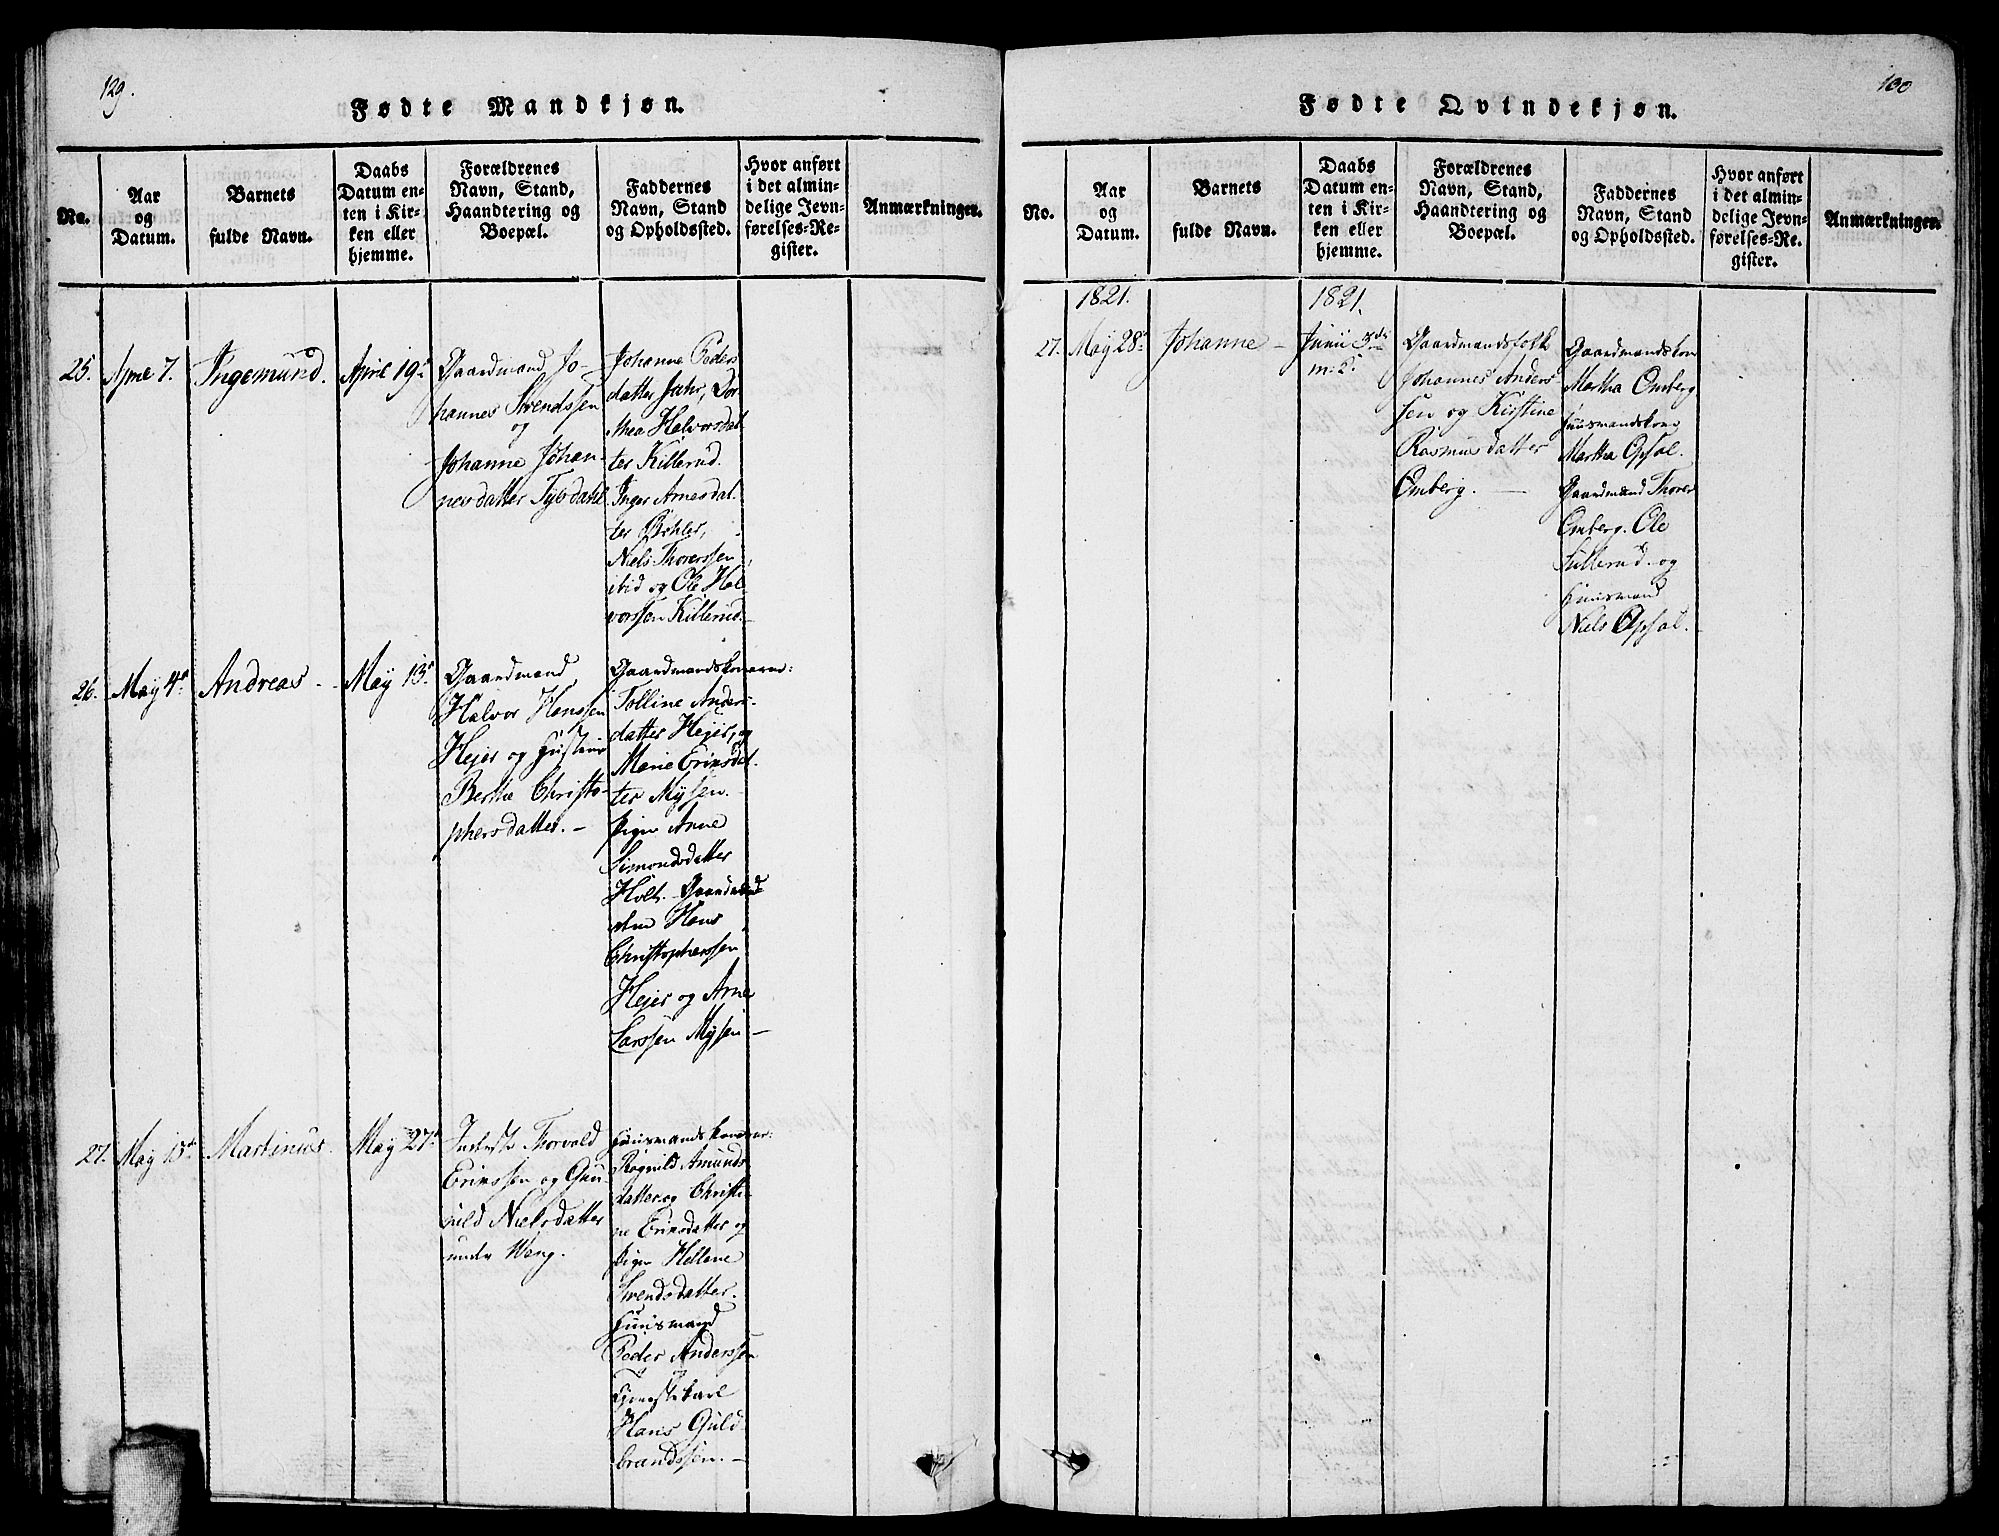 129.
Fødte Mandkjøn.
No.
Aar
og
Datum.
Barnets
fulde Navn.
Daabs
Datum en-
ten i Kir-
ken eller
hjemme.
Forældrenes
Navn, Stand,
Haandtering og
Boepæl.
Faddernes
Navn, Stand
og Opholdssted.
Hvor anført
i det almin-
delige Jevn-
førelses-Re-
gister.
Anmærkninger.
25.
7.
Ingemund.
April 19
Gaardmand Jo-
hannes Svendssen
og
Johanne Johan-
nesdatter
Johanne Peders
datter Dor
thea Halvorsdat
ter Killerud.
Inger Arnesdat
ter
Niels Thorerssen
ibid og Ole Hal
vorssen Killerud.
26.
May 4
Andreas
May 13
Gaardmand
Halvor Hanssen
Hejer og
Berthe Christo-
phersdatter.
Gaardmandskonerne:
Anders-
datter Hejer, og
Marie Ericsdat
ter Mysen.
Pige Anne
Simonsdatter
Holt. Gaardmænd
Hans
Christopherssen
Hejer og Arne
Larssen Mysen
27.
May 13
Martinus
May 27
Inderst Thorvald
Ericssen og Gun
ild Nielsdatter
under Weng.
Huusmandskonerne:
Ragnild Amunds
datter og Christi-
ne Ericsdatter og
Pige Hellene
Svendsdatter.
Huusmand
Peder Anderssen
Tjenestekarl
Hans Guld
brandssen.
130
Fødte Qvindekjøn.
No.
Aar
og
Datum.
Barnets
fulde Navn.
Daabs
Datum en-
ten i Kir-
ken eller
hjemme.
Forældrenes
Navn, Stand,
Haandtering og
Boepæl.
Faddernes
Navn, Stand
og Opholdssted.
Hvor anført
i det almin-
delige Jevn-
førelses-Re-
gister.
Anmærkninger.
1821.
1821.
27.
May 28
Johanne
Junii 3
Gaardmandsfolk
Johannes Anders
sen og Kirstine
Rasmusdatter
Omberg.
Gaardmandskone
Martha Omberg
Huusmandskone
Martha Opsal.
Gaardmand Thorer
Omberg. Ole
og
Huusmand
Niels Opsal.